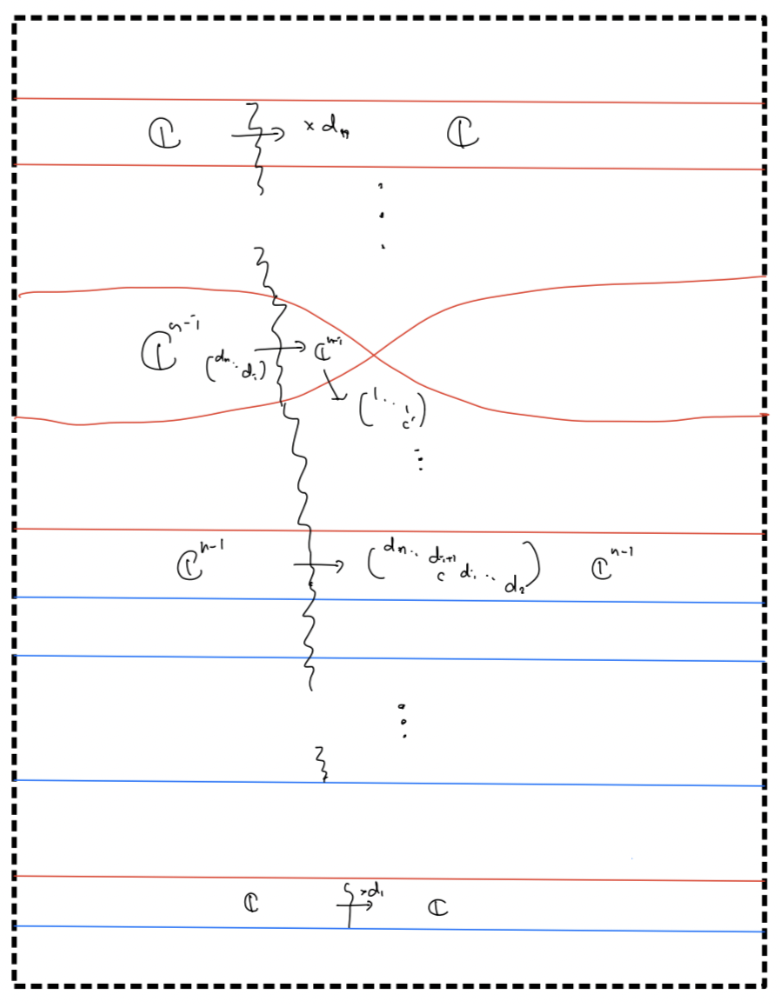 ℂ → × dₙ ℂ
⋮
ℂⁿ⁻¹ (dₙ⋱dᵢ) → ℂⁿ⁻¹
(1⋱1 c')
⋮
ℂⁿ⁻¹ → (dₙ⋱dᵢ₊₁ c dᵢ⋱d₂) ℂⁿ⁻¹
⋮
ℂ → ×d₁ ℂ